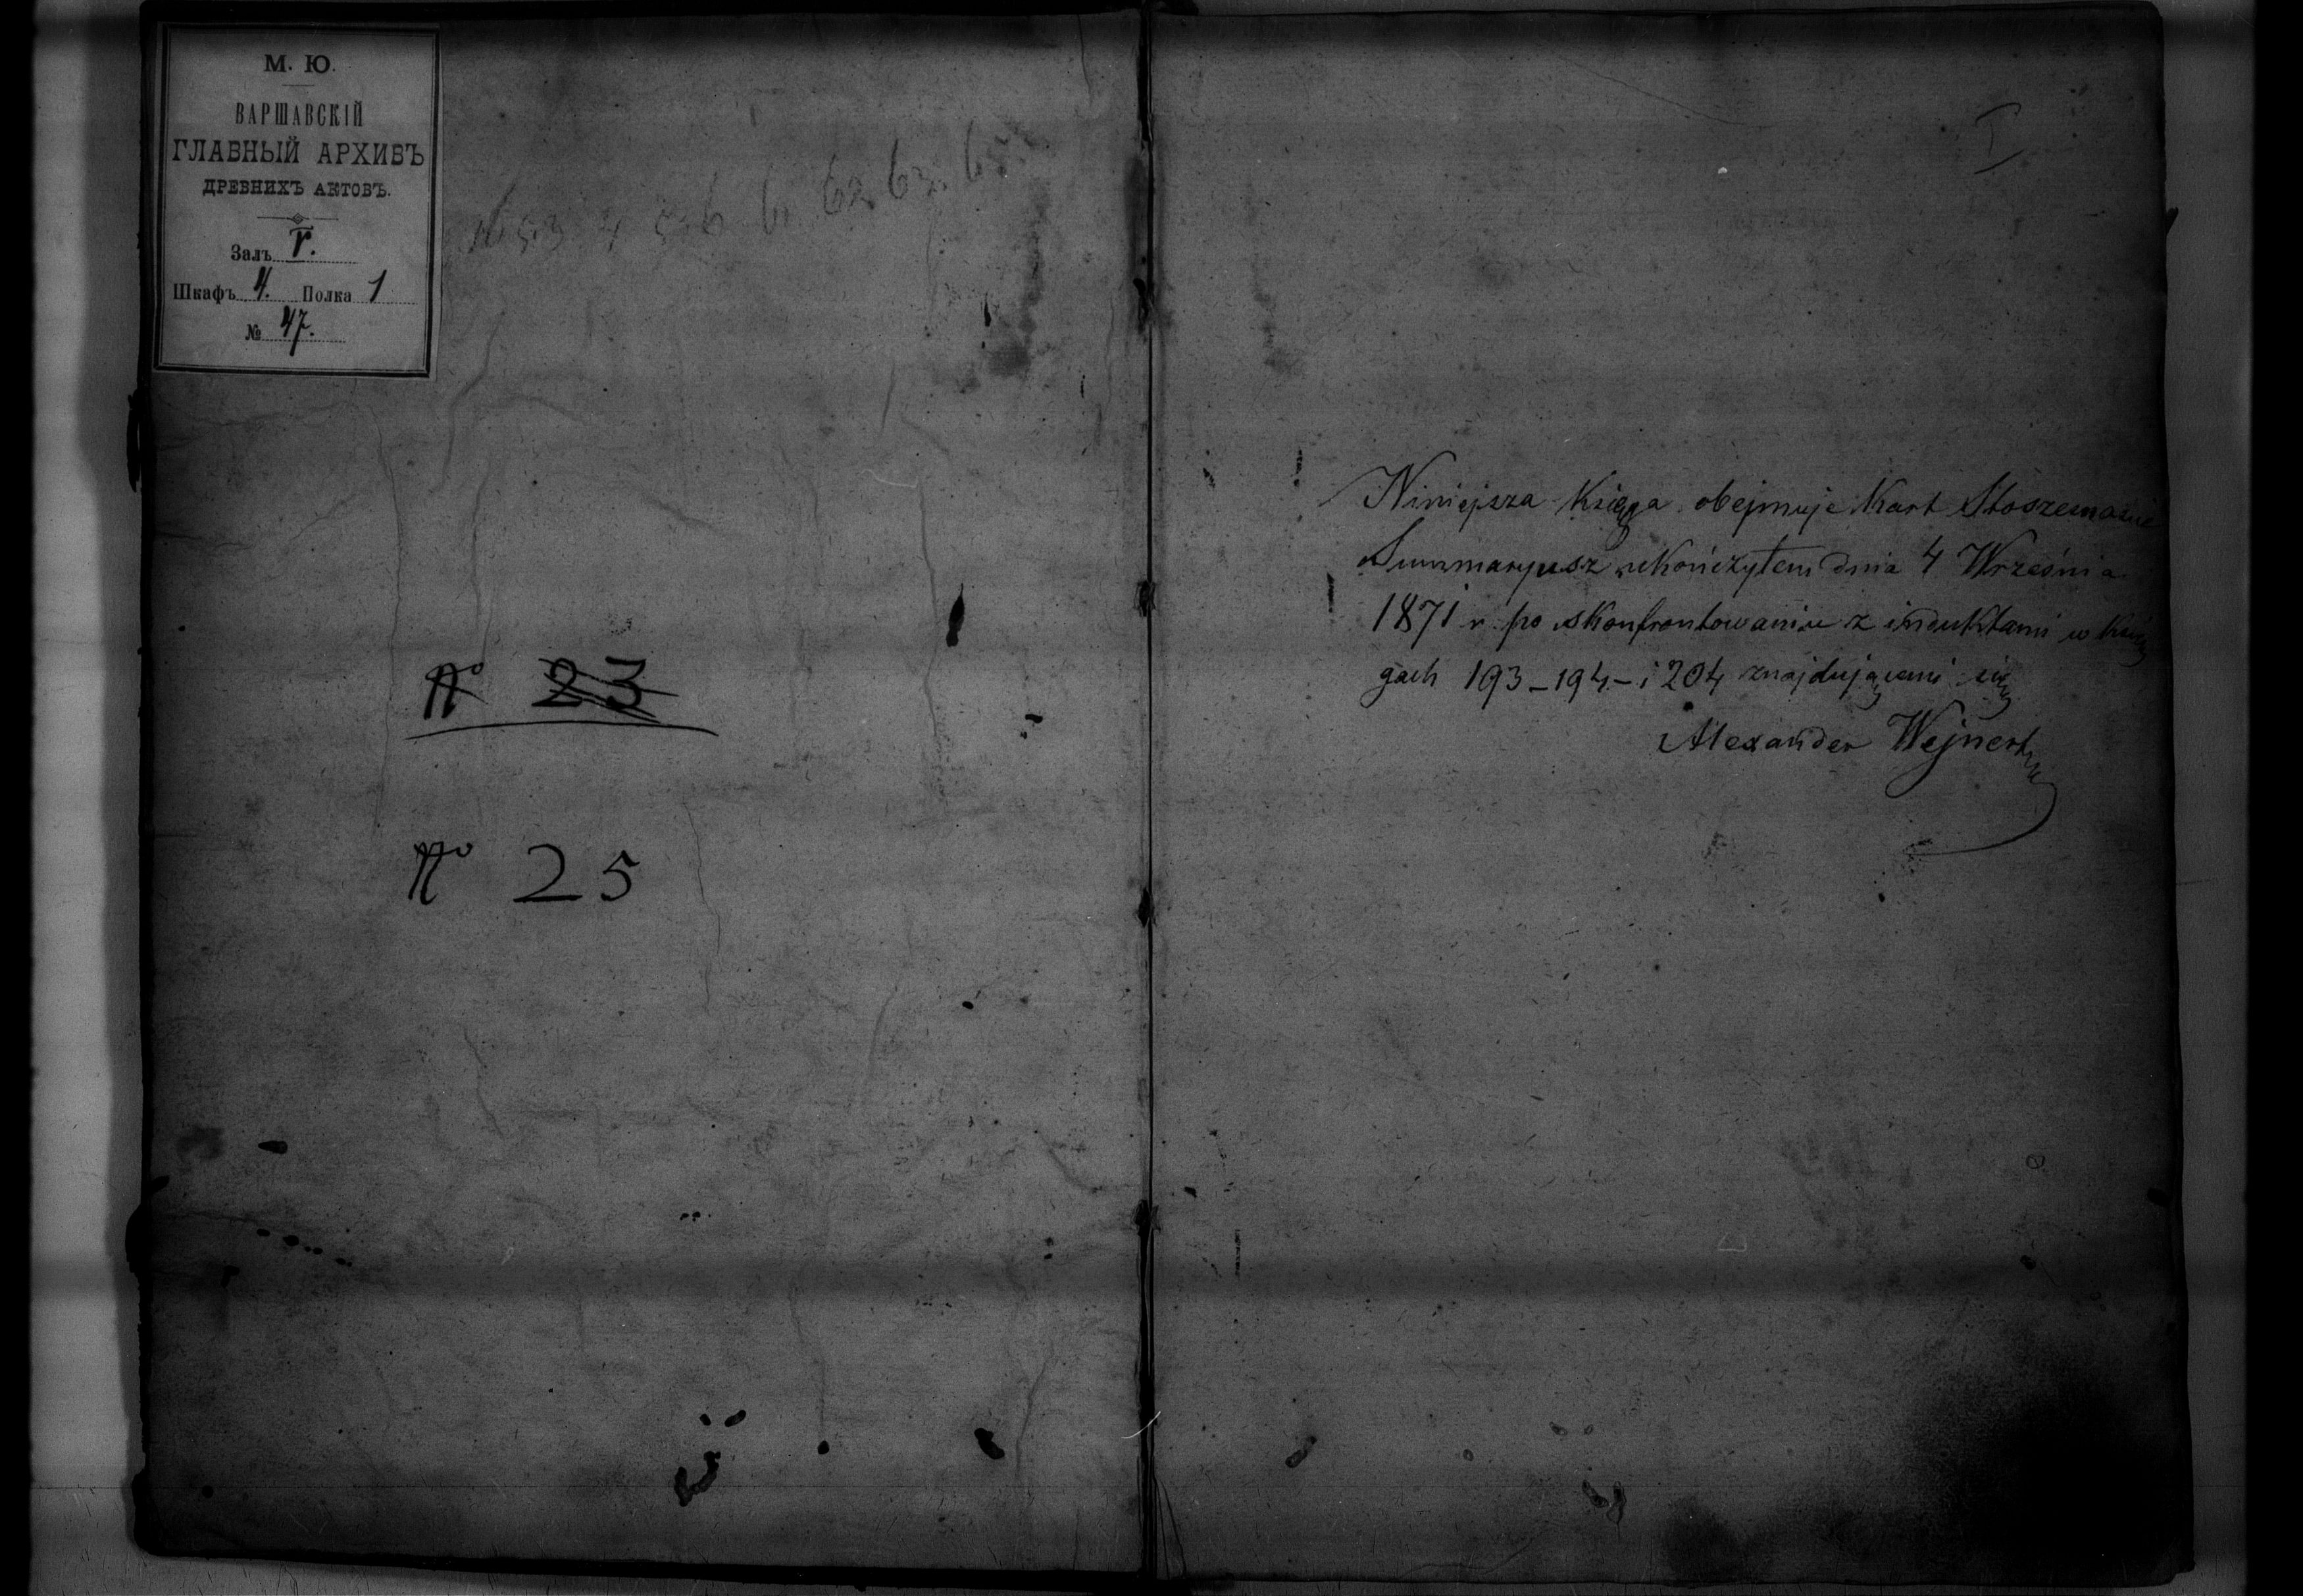 М. Ю.
ВАРШАВСКІЙ
ГЛАВНЫЙ АРХИВЪ
ДРЕВНИХЪ АКТОВЪ.
Залъ V.
Шкафъ 4. Полка 1
№ 47.
62 63. 65.
No 23
No 25
I
Niniejsza Księga obejmuje Kart
Summaryusz ukończyłem dnia 4 Września
1871 r. po skonfrontowaniu z induktami w Księ
gach 193 - 194 - i 204 znajdującemi się
Alexander Wejnert